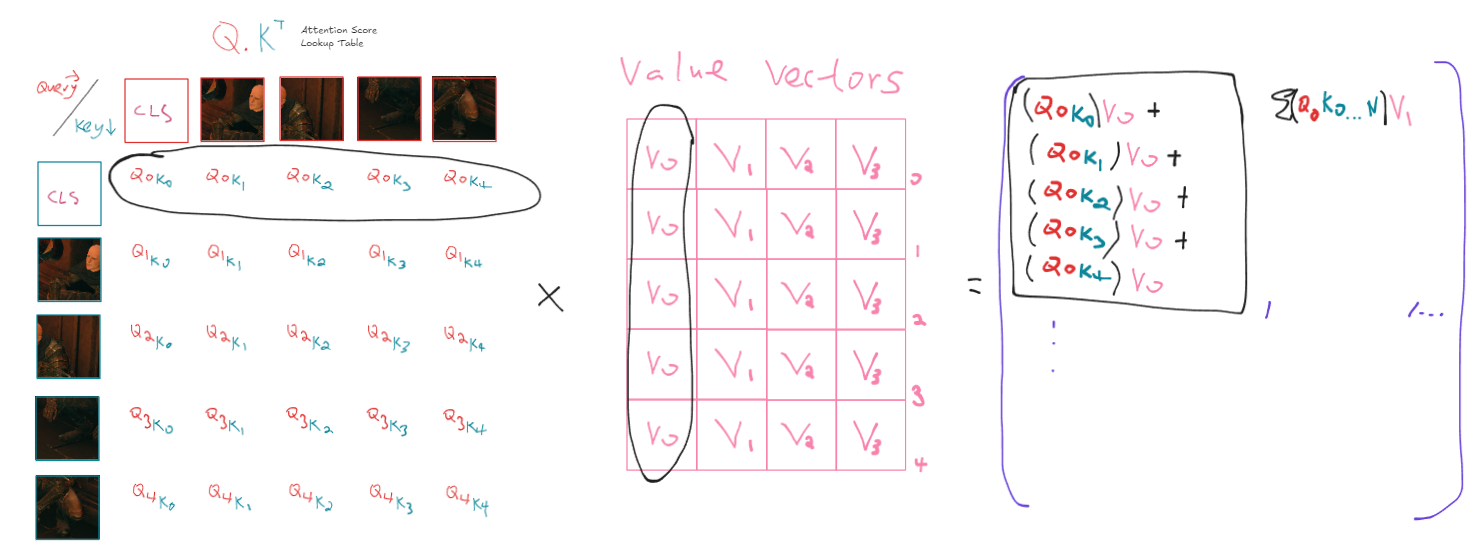 Q.Kᵀ
Attention Score
Lookup Table
Query→ / Key↓
CLS
CLS
Q0K0 Q0K1 Q0K2 Q0K3 Q0K4
Q1K0 Q1K1 Q1K2 Q1K3 Q1K4
Q2K0 Q2K1 Q2K2 Q2K3 Q2K4
Q3K0 Q3K1 Q3K2 Q3K3 Q3K4
Q4K0 Q4K1 Q4K2 Q4K3 Q4K4
×
Value Vectors
V0 V1 V2 V3 0
V0 V1 V2 V3 1
V0 V1 V2 V3 2
V0 V1 V2 V3 3
V0 V1 V2 V3 4
=
(Q0K0)V0 +
(Q0K1)V0 +
(Q0K2)V0 +
(Q0K3)V0 +
(Q0K4)V0
Σ(Q0K0...N)V1
, ,...
⋮